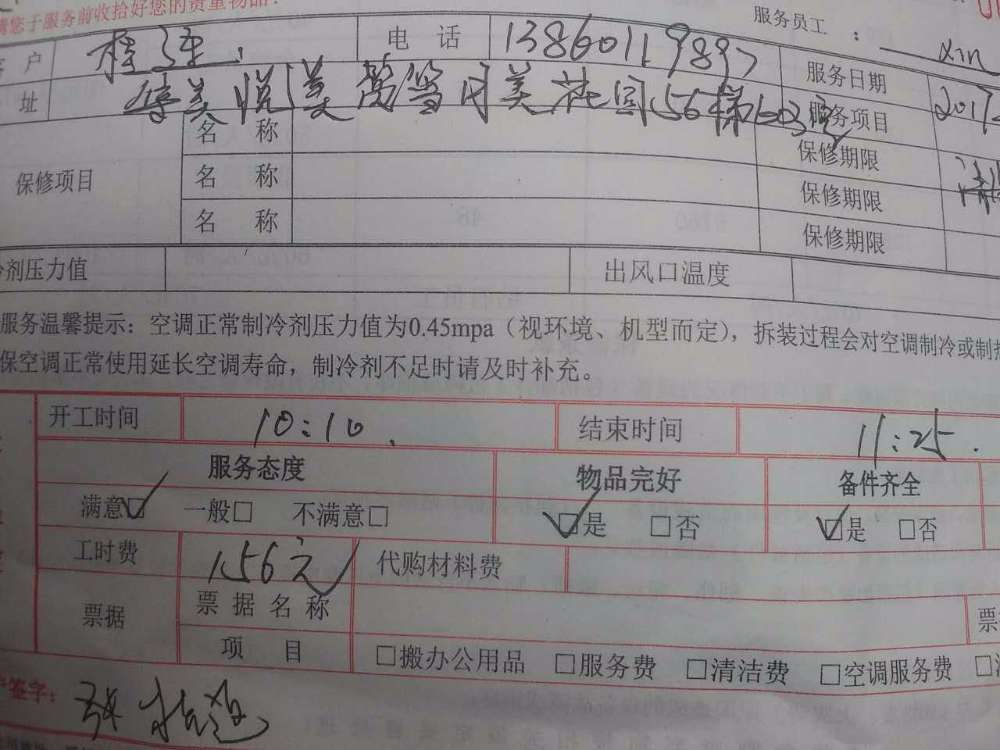 您于服务前收拾好您的贵重物品!
服务员工 :
客 户
电 话 13860119897
服务日期
2017
址
56梯603室
服务项目
保修项目
名 称
保修期限
名 称
保修期限
名 称
保修期限
冷剂压力值
出风口温度
服务温馨提示:空调正常制冷剂压力值为0.45mpa(视环境、机型而定),拆装过程会对空调制冷或制热
保空调正常使用延长空调寿命,制冷剂不足时请及时补充。
开工时间 10:10 结束时间 11:25
服务态度 物品完好 备件齐全
满意☑ 一般□ 不满意□ ☑是 □否 ☑是 □否
工时费 156元 代购材料费
票据
票据名称
票
项 目 □搬办公用品 □服务费 □清洁费 □空调服务费
签字: